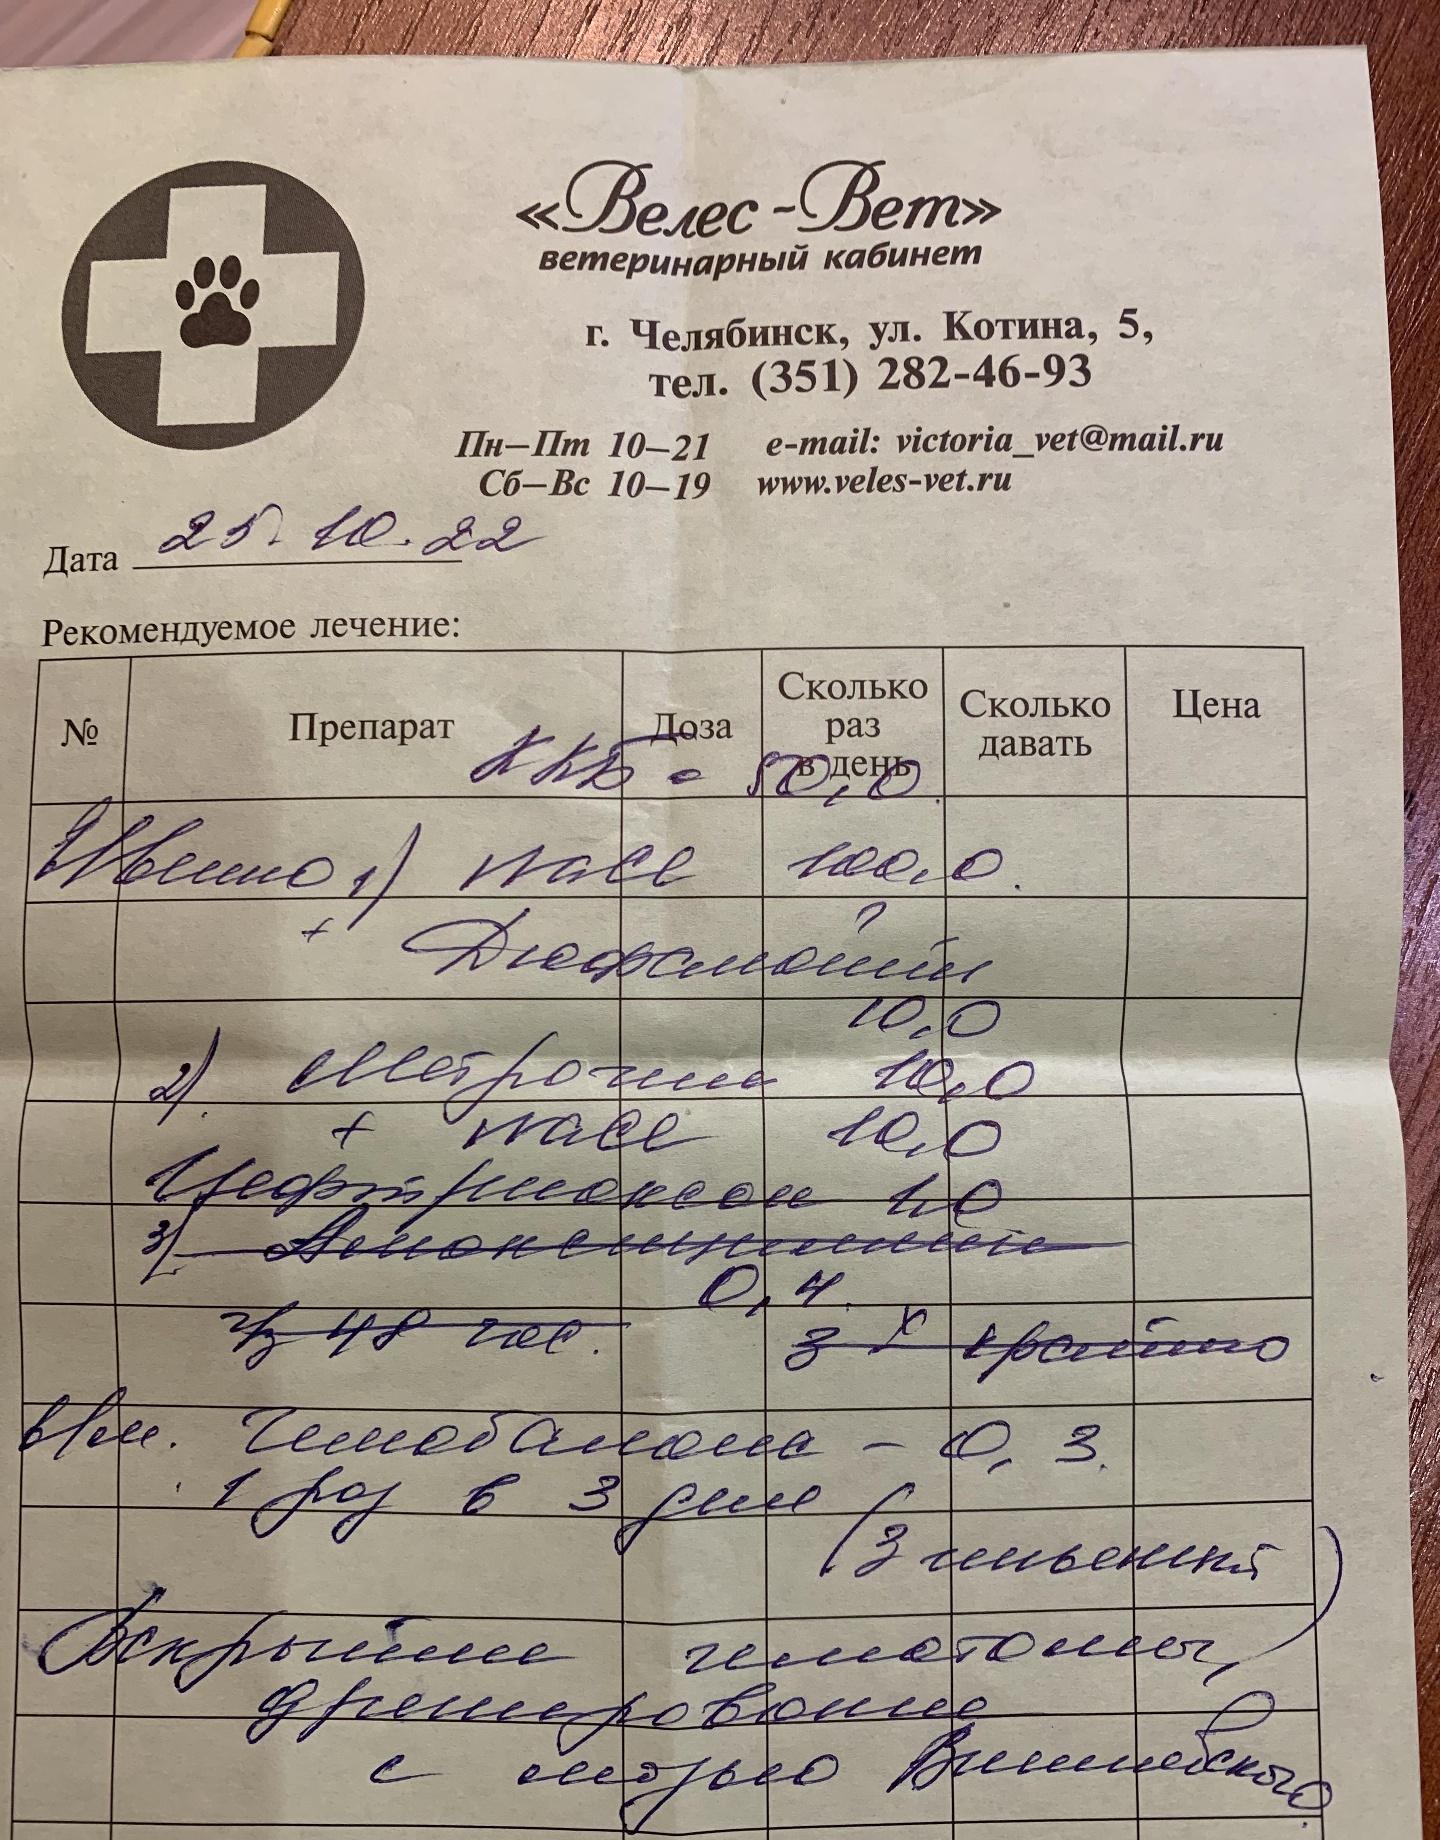 «Велес-Вет»
ветеринарный кабинет
г. Челябинск, ул. Котина, 5,
тел. (351) 282-46-93
Пн–Пт 10–21 e-mail: victoria_vet@mail.ru
Сб–Вс 10–19 www.veles-vet.ru
Дата 25.10.22
Рекомендуемое лечение:
№ Препарат Доза Сколько раз в день Сколько давать Цена
ККБ - 50,0.
1) NaCl 100,0.
+ Дюфалайт
10,0
2) Метрогил 10,0
+ NaCl 10,0
Цефтриаксон 1,0
3) Амоксициллин
0,4.
48 час. 3х кратно
в/м. Гемобаланс - 0,3.
1 раз в 3 дня
(3 инъекий)
Вскрытие гематомы,
дренирование
с мазью Вишневского.